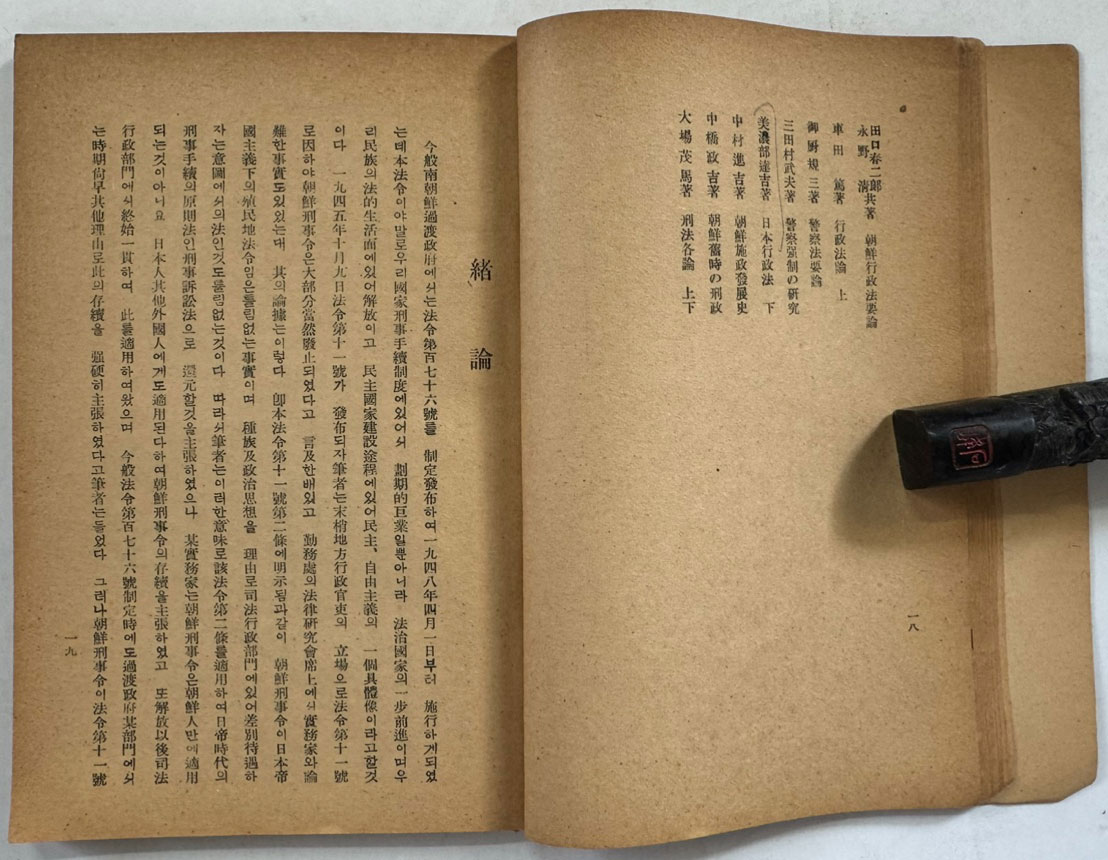 田口春二郎
永野　清共著　朝鮮行政法要論
車田　篤著　行政法論　上
御厨規三著　警察法要論
三田村武夫著　警察强制の研究
美濃部達吉著　日本行政法　下
中村進吉著　朝鮮施政發展史
中橋政吉著　朝鮮舊時の刑政
大場茂馬著　刑法各論　上下
一八
緖論
今般南朝鮮過渡政府에서는法令第百七十六號를　制定發布하여一九四八年四月一日부터　施行하게되였
는데本法令이야말로우리國家刑事手續制度에있어서　劃期的巨業일뿐아니라　法治國家의一步前進이며우
리民族의法的生活面에있어解放이고　民主國家建設途程에있어民主、自由主義의　一個具體像이라고할것
이다　一九四五年十月九日法令第十一號가　發布되자筆者는末梢地方行政官吏의　立場으로法令第十一號
로因하야朝鮮刑事令은大部分當然廢止되였다고　言及한배있고　勤務處의法律硏究會席上에서實務家와論
難한事實도있었는대　其의論據는이렇다　卽本法令第十一號第二條에明示됨과같이　朝鮮刑事令이日本帝
國主義下의殖民地法令임은틀림없는事實이며　種族及政治思想을　理由로司法行政部門에있어差別待遇하
자는意圖에서의法인것도틀림없는것이다　따라서筆者는이러한意味로該法令第二條를適用하여日帝時代의
刑事手續의原則法인刑事訴訟法으로　還元할것을主張하였으나　某實務家는朝鮮刑事令은朝鮮人만에適用
되는것이아니요　日本人其他外國人에게도適用된다하여朝鮮刑事令의存續을主張하였고　또解放以後司法
行政部門에서終始一貫하여　此를適用하여왔으며　今般法令第百七十六號制定時에도過渡政府某部門에서
는時期尙早其他理由로此의存續을　强硬히主張하였다고筆者는들었다　그러나朝鮮刑事令이法令第十一號
一九